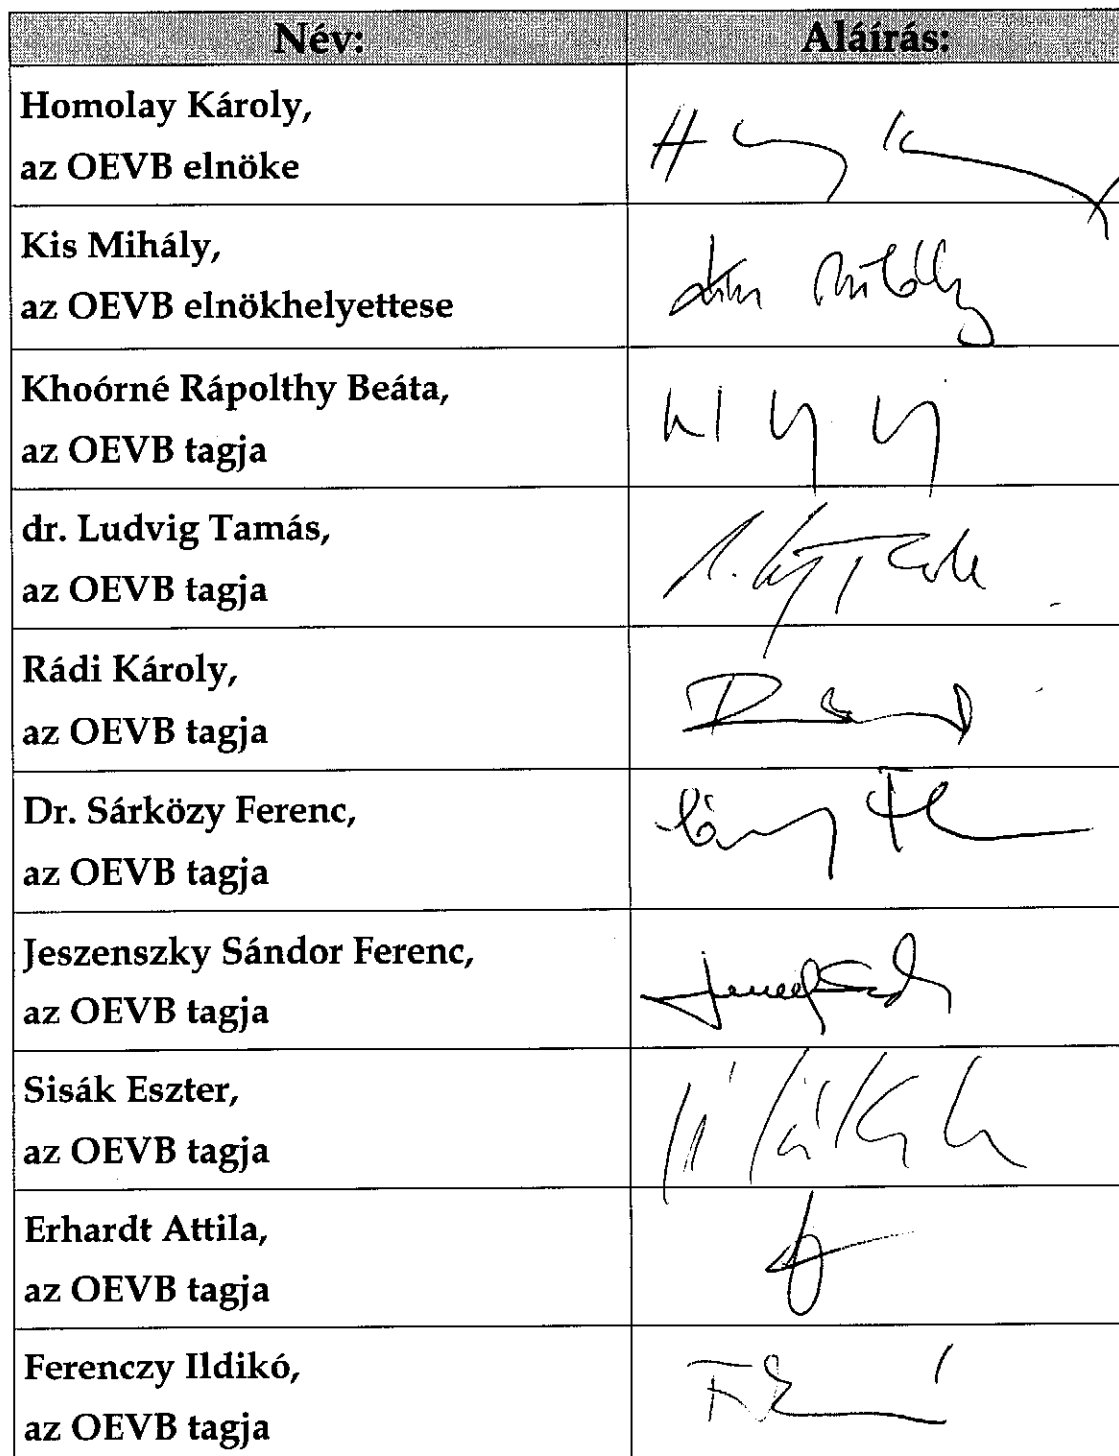 Név: Aláírás:
Homolay Károly,
az OEVB elnöke
Kis Mihály,
az OEVB elnökhelyettese
Khoórné Rápolthy Beáta,
az OEVB tagja
dr. Ludvig Tamás,
az OEVB tagja
Rádi Károly,
az OEVB tagja
Dr. Sárközy Ferenc,
az OEVB tagja
Jeszenszky Sándor Ferenc,
az OEVB tagja
Sisák Eszter,
az OEVB tagja
Erhardt Attila,
az OEVB tagja
Ferenczy Ildikó,
az OEVB tagja